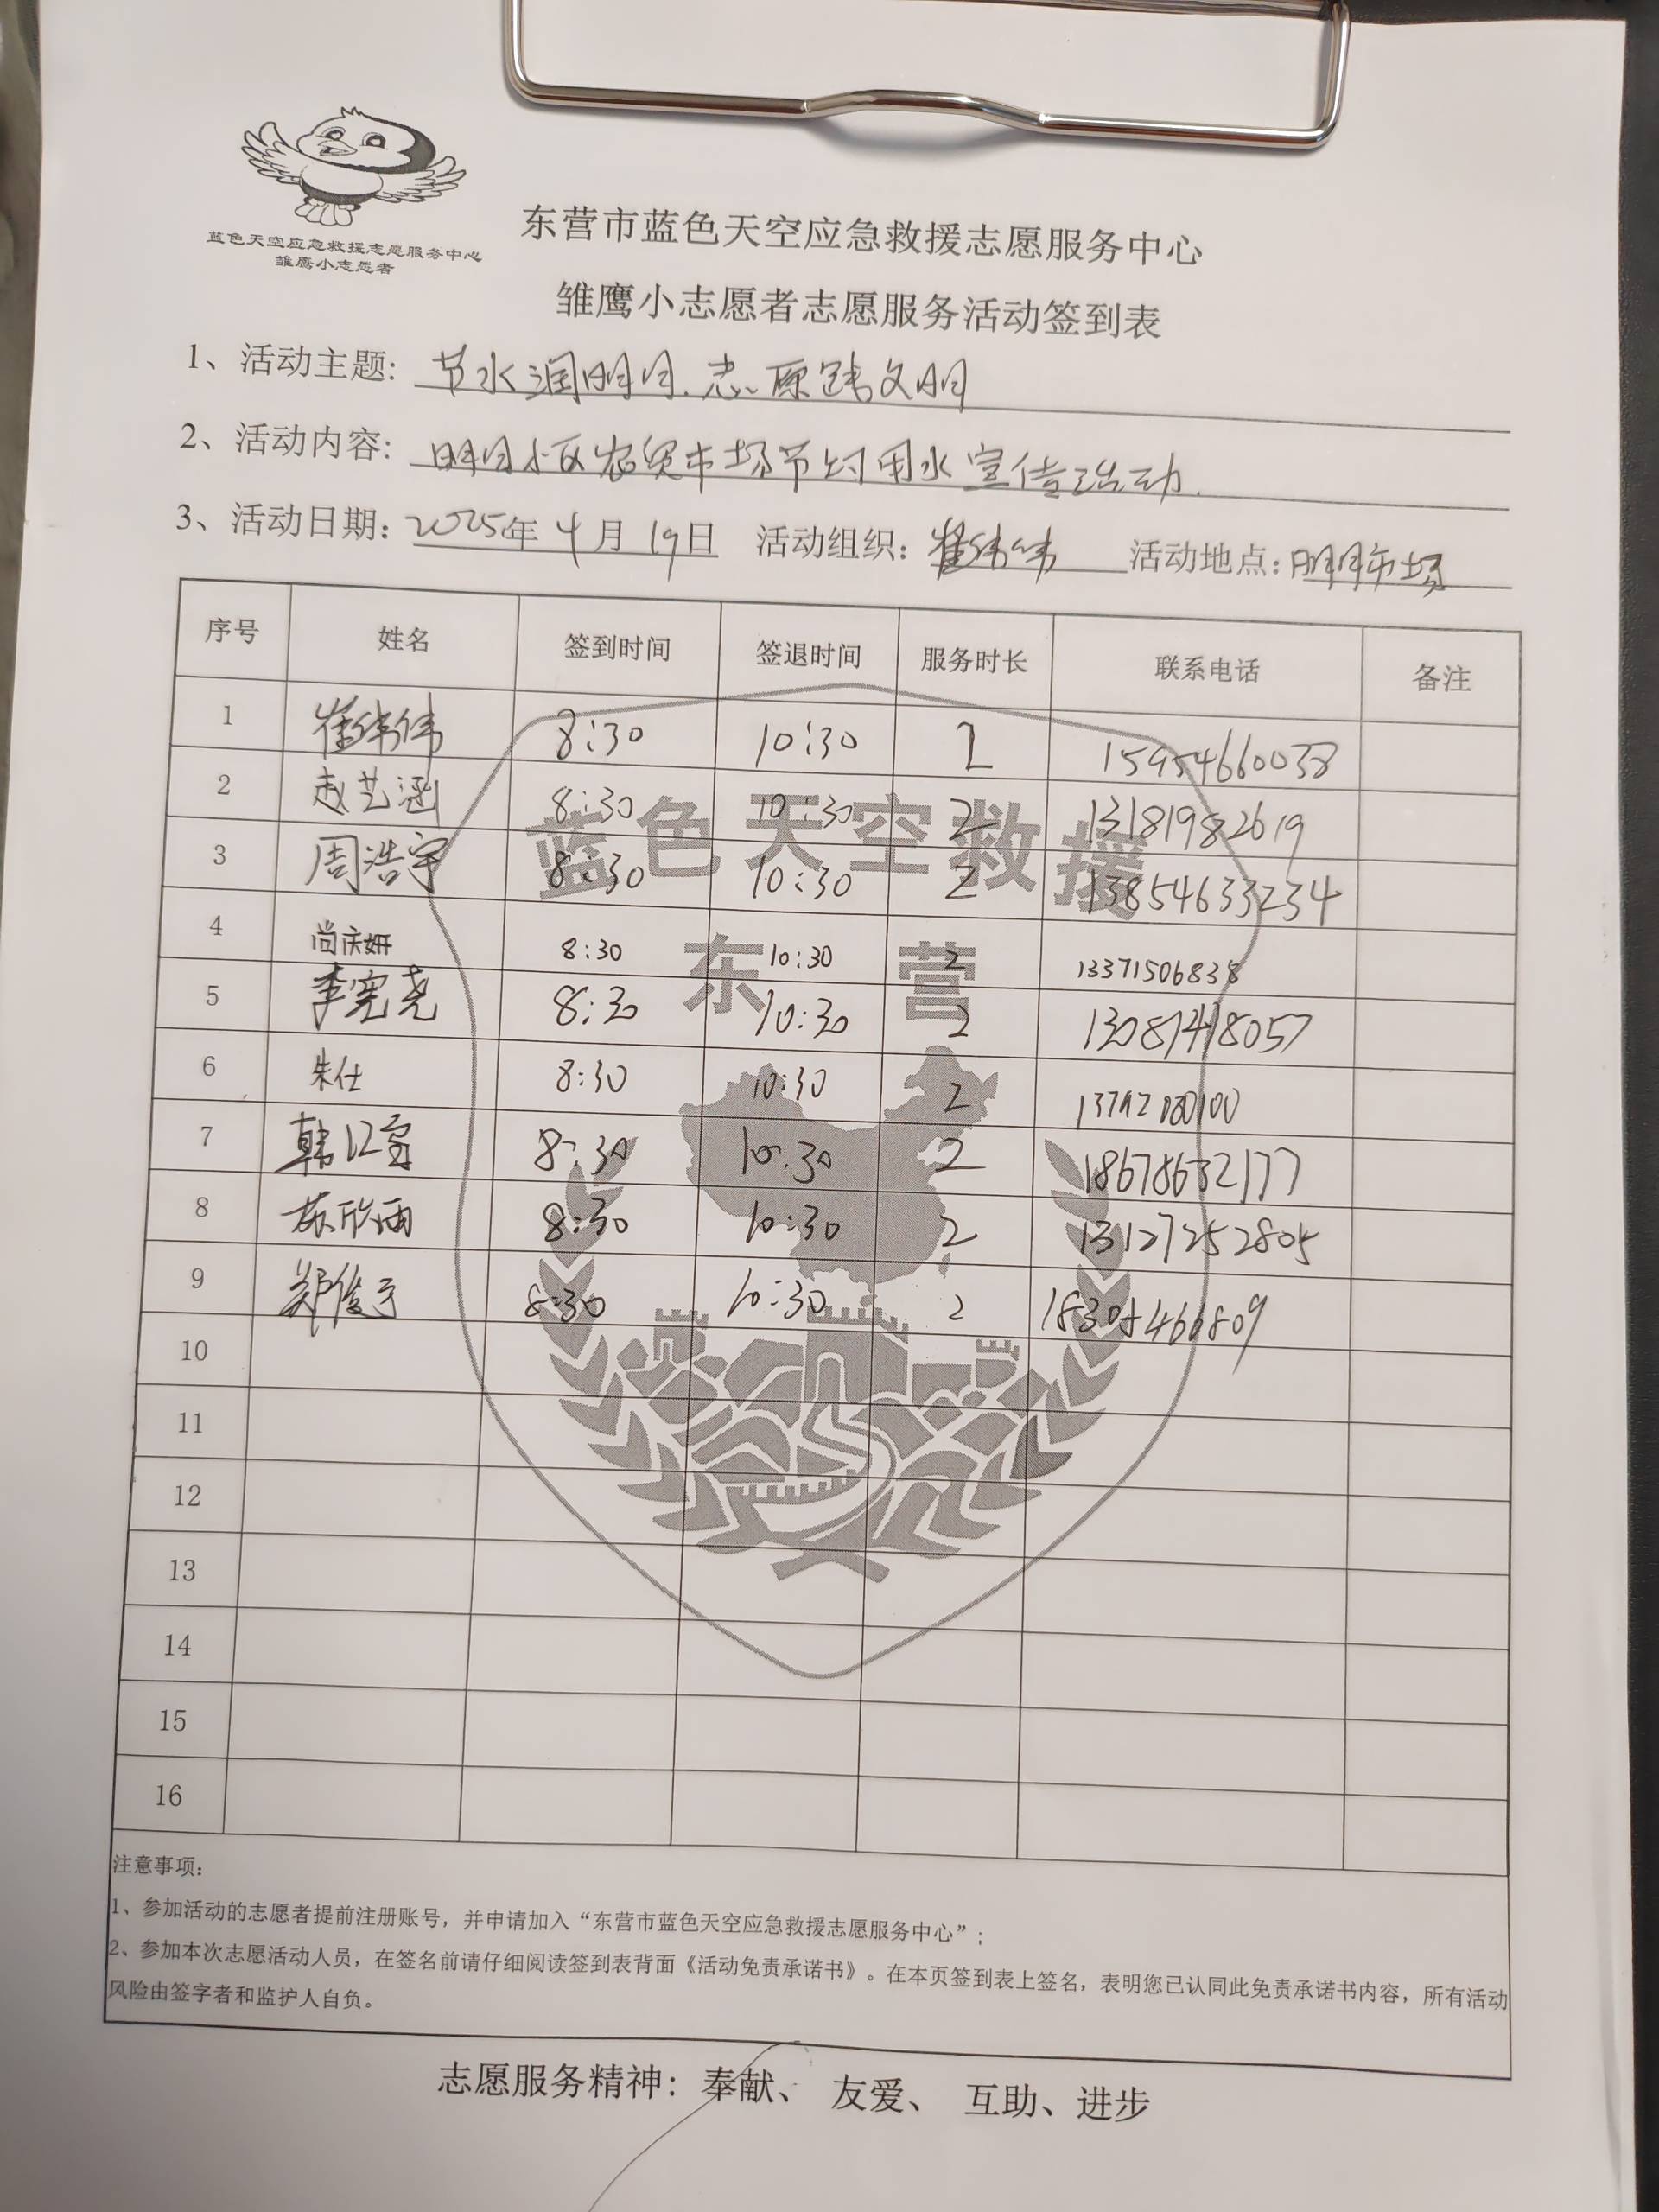 蓝色天空应急救援志愿服务中心
雏鹰小志愿者
东营市蓝色天空应急救援志愿服务中心
雏鹰小志愿者志愿服务活动签到表
1、活动主题: 节水润明月.志愿践文明
2、活动内容: 明月小区农贸市场节约用水宣传活动.
3、活动日期: 2025年 4月 19日 活动组织: 崔伟伟 活动地点: 明月市场
序号 姓名 签到时间 签退时间 服务时长 联系电话 备注
1 崔伟伟 8:30 10:30 2 15954660038
2 赵艺涵 8:30 10:30 2 13181982619
3 周浩宇 8:30 10:30 2 13854633234
4 尚庆妍 8:30 10:30 2 13371506838
5 李宪尧 8:30 10:30 2 13087418057
6 朱仕 8:30 10:30 2
7 韩 8:30 10:30 2 18678632177
8 苏欣雨 8:30 10:30 2 13127252805
9 郑俊 8:30 10:30 2 18305466809
10
11
12
13
14
15
16
蓝色天空救援
东营
注意事项:
1、参加活动的志愿者提前注册账号，并申请加入“东营市蓝色天空应急救援志愿服务中心”;
2、参加本次志愿活动人员，在签名前请仔细阅读签到表背面《活动免责承诺书》。在本页签到表上签名，表明您已认同此免责承诺书内容，所有活动
风险由签字者和监护人自负。
志愿服务精神: 奉献、 友爱、 互助、进步